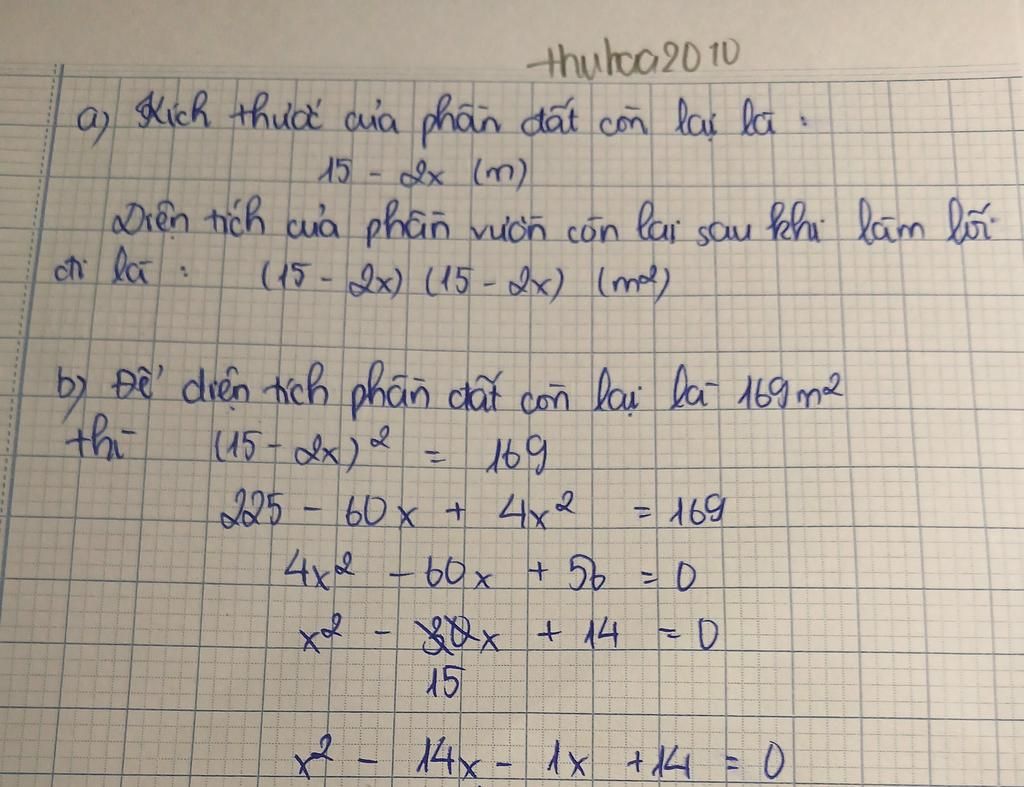 thuhoa2010
a) Kích thước của phần đất còn lại là :
15 - 2x (m)
Diện tích của phần vườn còn lại sau khi làm lối
đi là : (15 - 2x) (15 - 2x) (m2)
b) Để diện tích phần đất còn lại là 169m2
thì (15 - 2x)² = 169
225 - 60x + 4x² = 169
4x² - 60x + 56 = 0
x² - 30x + 14 = 0
15
x² - 14x - 1x + 14 = 0